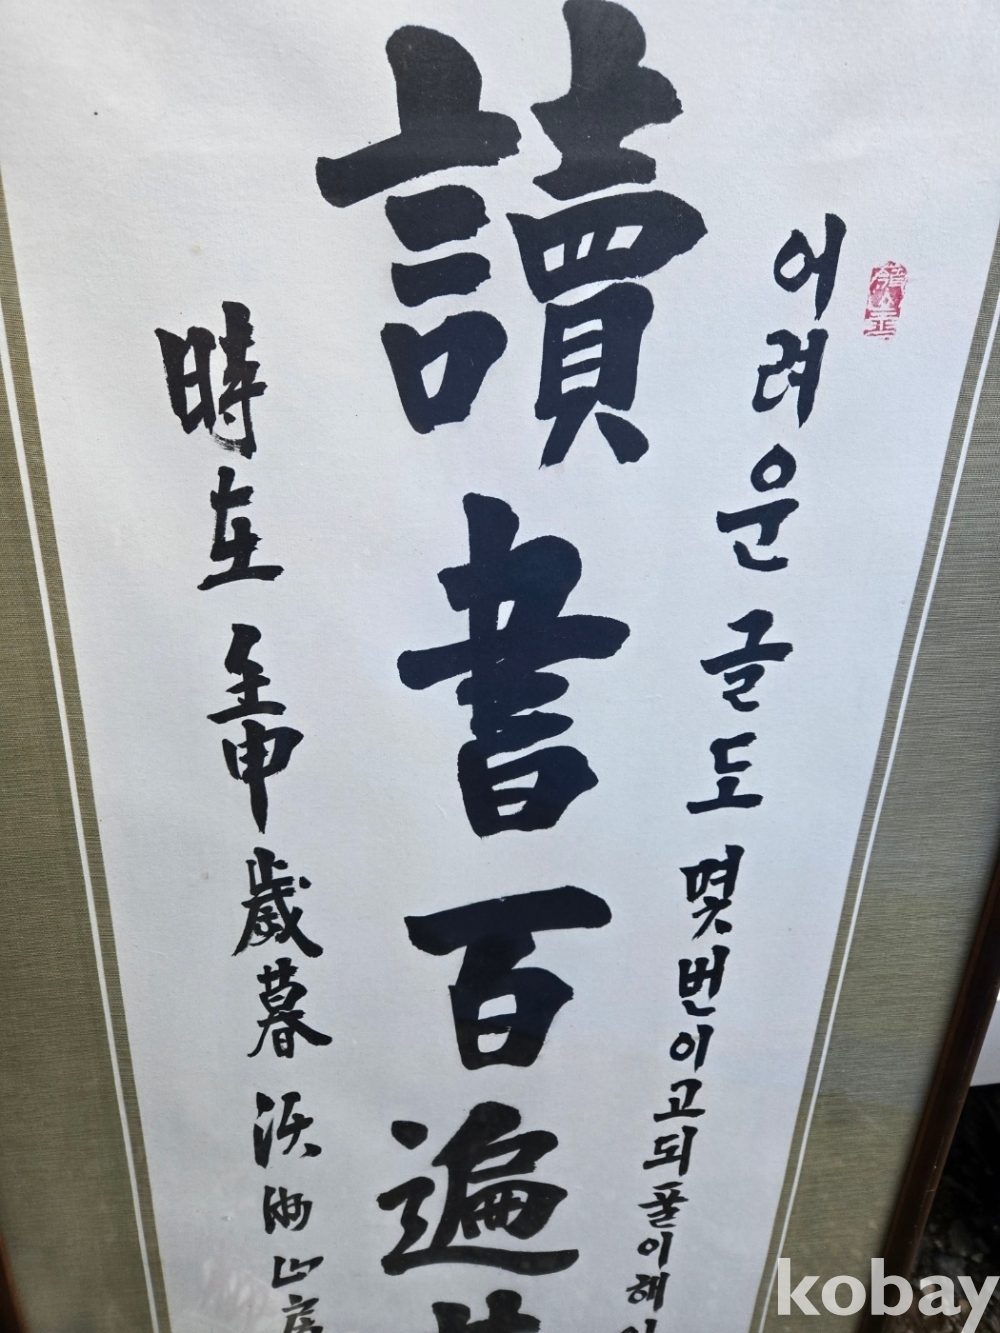 어려운 글도 몇번이고되풀이해
讀書百遍
時在壬申歲暮 沃洲山房
kobay